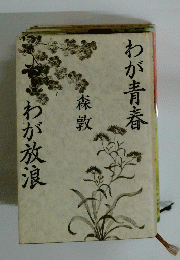 わが青春
わが放浪
森敦